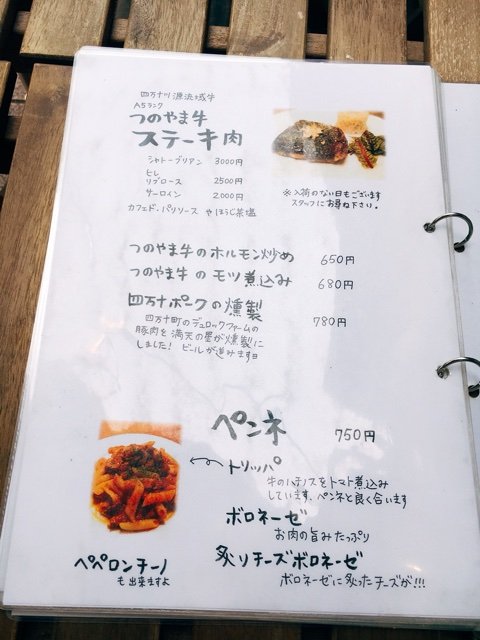 四万十川源流域牛
A5ランク
つのやま牛
ステーキ肉
シャトーブリアン 3000円
ヒレ
リブロース 2500円
サーロイン 2.000円
カフェド・パリソース やほうじ茶塩
※入荷のない日もございます
スタッフにお尋ね下さい。
つのやま牛のホルモン炒め 650円
つのやま牛のモツ煮込み 680円
四万十ポークの燻製 780円
四万十町のデュロックファームの
豚肉を満天の星が燻製に
しました! ビールが進みます
ペンネ 750円
トリッパ
牛のハチノスをトマト煮込み
しています、ペンネと良く合います
ボロネーゼ
お肉の旨みたっぷり
炙りチーズボロネーゼ
ボロネーゼに炙ったチーズが!!!
ペペロンチーノ
も出来ますよ